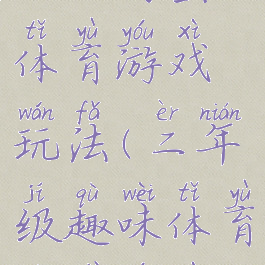 tǐ yù yóu xì
体育游戏
wán fǎ èr nián
玩法(二年
jí qù wèi tǐ yù
级趣味体育